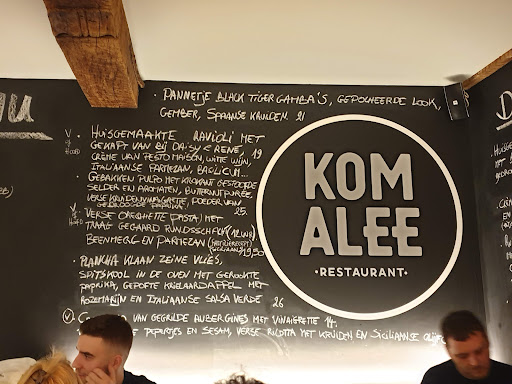 · PANNETJE BLACK TIGER GAMBA'S, GEPOCHEERDE LOOK,
GEMBER, SPAANSE KRUIDEN 21
· HUISGEMAAKTE RAVIOLI MET
GEKAFT VAN BIJ DAISY & RENÉ, 19
CRÈME VAN PESTO MAISON, WITTE WIJN,
ITALIAANSE PARTEZAN, BASILICUM...
· GEBAKKEN PULPO MET KROKANT GESTOOFDE
SELDER EN AROMATEN, BUTTERNUTPUREE,
VERSE KRUIDENVINAIGRETTE, POEDER VAN
GEDROOGDE PAPRIKA 25.
· VERSE ORECHIETTE (PASTA) MET
TRAAG GEGAARD RUNDSSCHELK
BEENMERG EN PARTEZAAN 19,50
· PLANCHA KLAAN ZEINE VLIES,
SPITSKOOL IN DE OVEN MET GEROOKTE
PAPRIKA, GEPOFTE KRIELAARDAPPEL MET
ROZEMARIJN EN ITALIAANSE SALSA VERDE 26
VAN GEGRILDE AUBERGINES MET VINAIGRETTE 14.
PEPERTJES EN SESAM, VERSE RICOTTA MET KRUIDEN EN SICILIAANSE
KOM
ALEE
· RESTAURANT ·